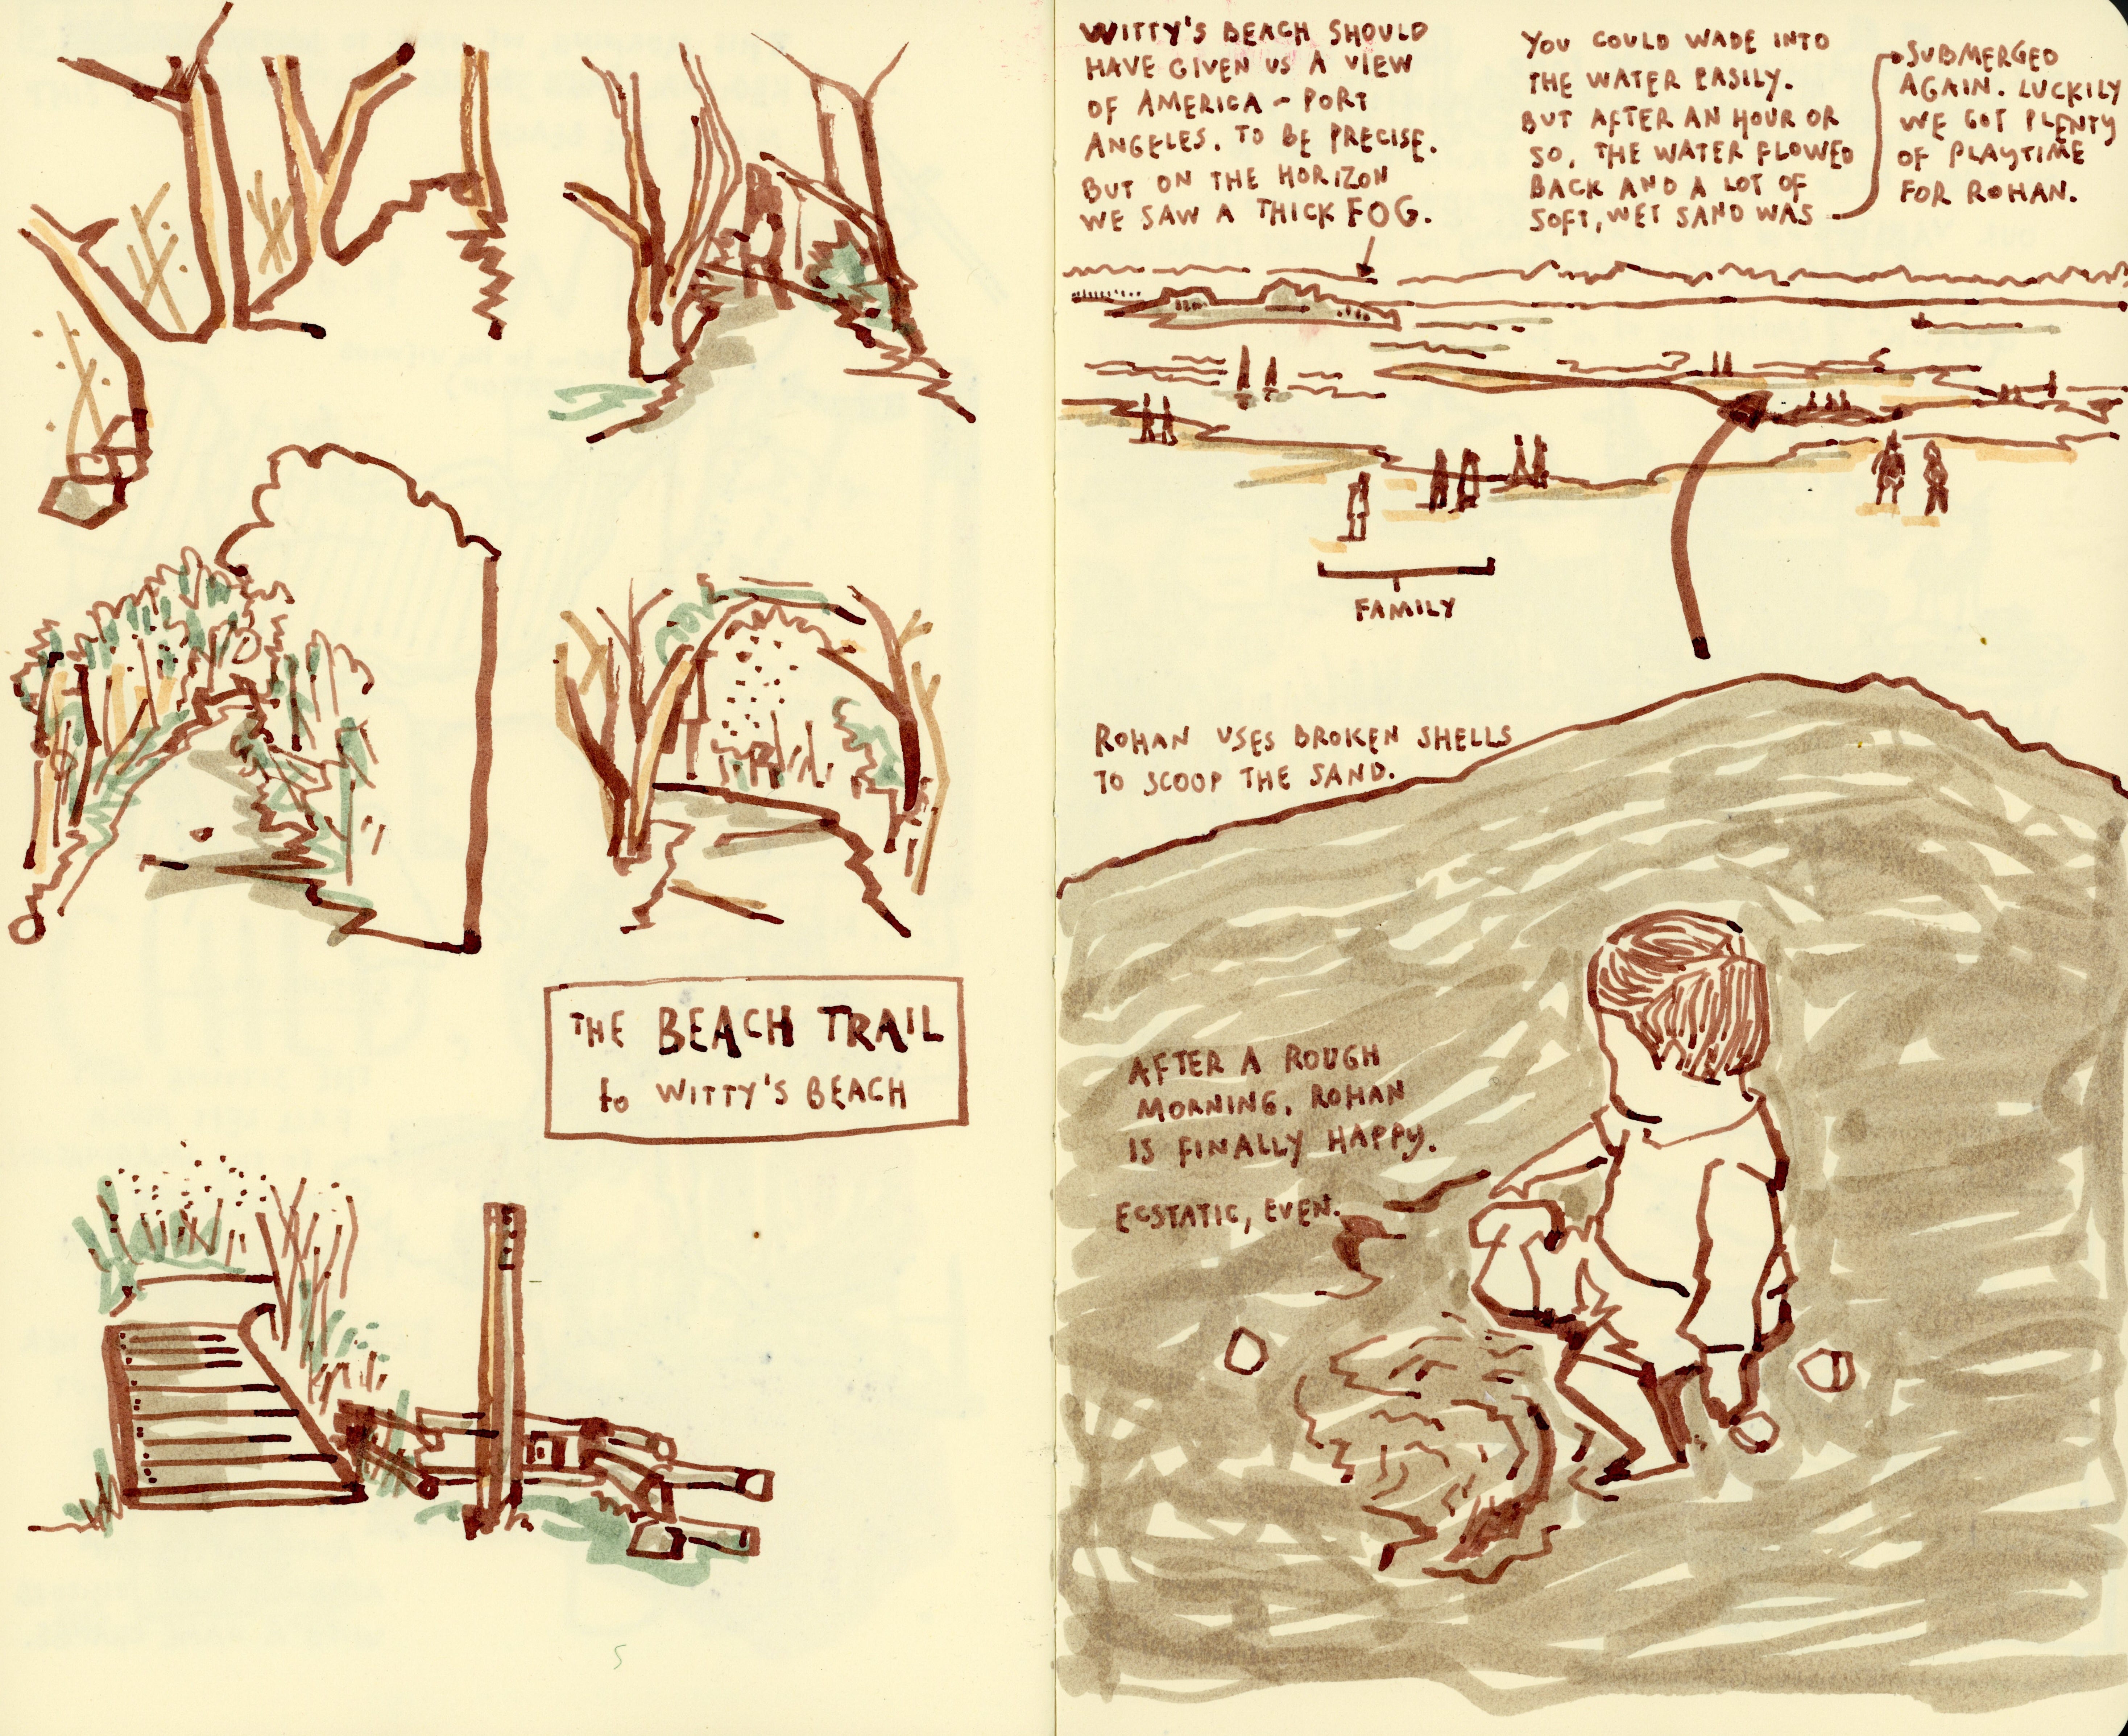 THE BEACH TRAIL
to WITTY'S BEACH
5
WITTY'S BEACH SHOULD
HAVE GIVEN US A VIEW
OF AMERICA - PORT
ANGELES, TO BE PRECISE.
BUT ON THE HORIZON
WE SAW A THICK FOG.
YOU COULD WADE INTO
THE WATER EASILY.
BUT AFTER AN HOUR OR
SO, THE WATER FLOWED
BACK AND A LOT OF
SOFT, WET SAND WAS
SUBMERGED
AGAIN. LUCKILY
WE GOT PLENTY
OF PLAYTIME
FOR ROHAN.
FAMILY
ROHAN USES BROKEN SHELLS
TO SCOOP THE SAND.
AFTER A ROUGH
MORNING, ROHAN
IS FINALLY HAPPY.
ECSTATIC, EVEN.